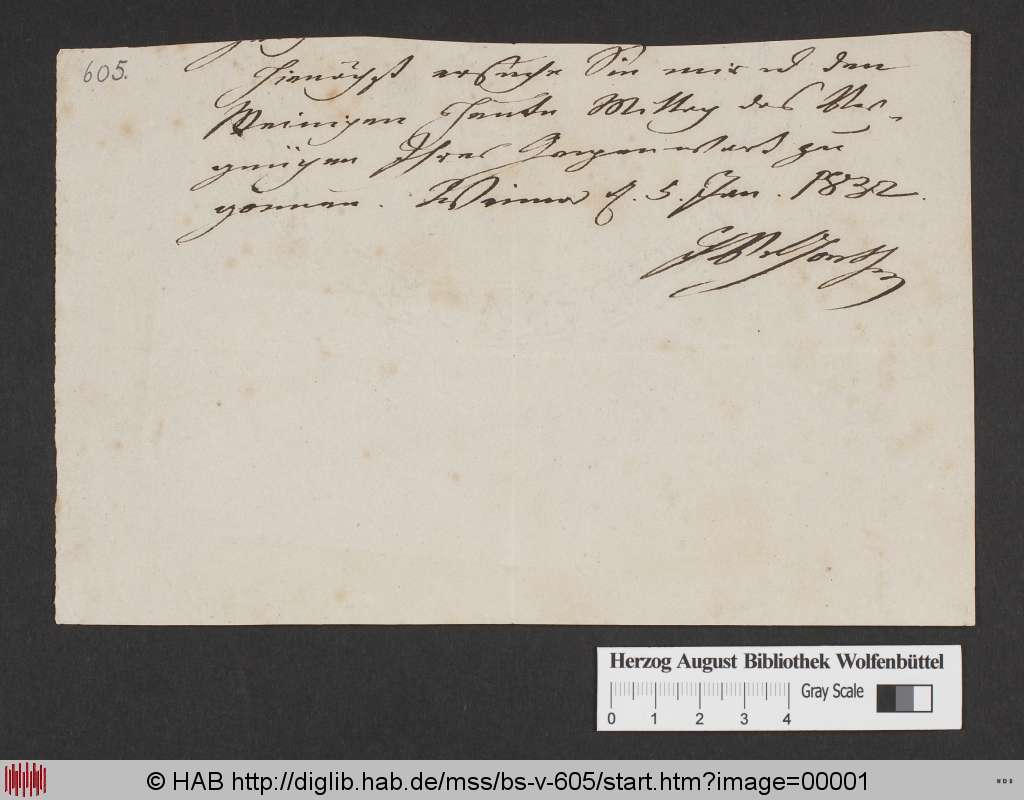 605.
Hienächst ersuche Sie mir u den
Meinigen heute Mittag das Ver-
gnügen Ihrer Gegenwart zu
gönnen. Weimar d. 5. Jan. 1832.
JWvGoethe
Herzog August Bibliothek Wolfenbüttel
Gray Scale
0 1 2 3 4
© HAB http://diglib.hab.de/mss/bs-v-605/start.htm?image=00001